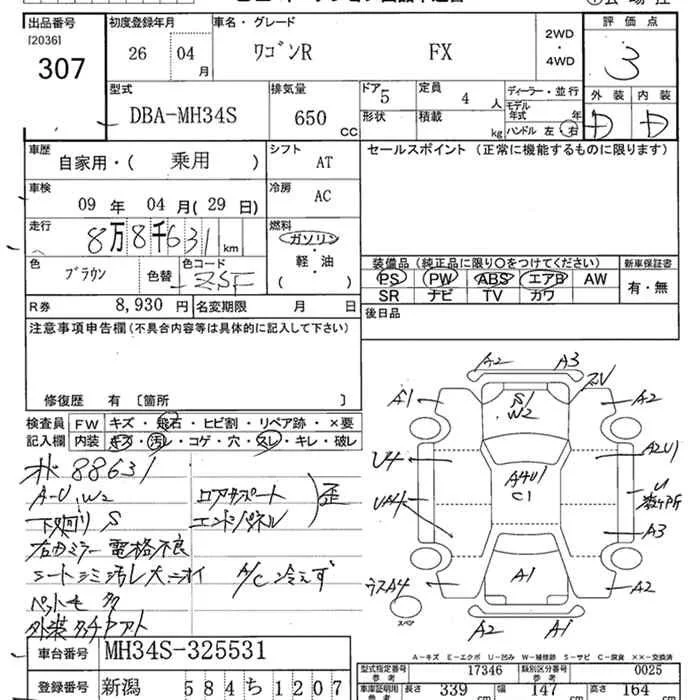 出品番号
[2036]
307
初度登録年月
26 04 月
車名・グレード
ワゴンR FX
2WD
・
4WD
評価点
3
外装 内装
D D
型式
DBA-MH34S
排気量
650 CC
ドア 5
形状
定員 4 人
積載 kg
ディーラー・並行
モデル
年式 年
ハンドル 左・右
車歴
自家用・( 乗用 )
シフト
AT
セールスポイント (正常に機能するものに限ります)
車検
09 年 04 月 ( 29 日)
冷房
AC
走行
8万8千631 km
燃料
ガソリン
軽・油
( )
色
ブラウン
色替
色コード
ZSF
装備品 (純正品に限り○をつけてください)
PS PW ABS エアB AW
SR ナビ TV カワ
新車保証書
有・無
R券 8,930 円
名変期限 月 日
後日品
注意事項申告欄 (不具合内容等は具体的に記入して下さい)
修復歴 有 [箇所 ]
検査員
記入欄
FW キズ・飛石・ヒビ割・リペア跡・×要
内装 キズ・汚レ・コゲ・穴・スレ・キレ・破レ
88631
A-U, W2
下廻り S
右ドミラー 電格不良
シートシミ汚レ大 ニオイ A/C 冷えず
ペットモ 多
ロアサポート
エンドパネル
歪
A2 A3
A1 A2
S1
W2
U4 A2U1
A4U1
C1
UA4 U
数ヶ所
A3
A1
A4 A2
スペア
A2 A1
A-キズ E-エクボ U-凹み W-補修跡 S-サビ C-腐食 ××-交換済
車台番号 MH34S-325531
登録番号 新潟 584ち1207
型式指定番号
参考
17346
類別区分番号
参考
0025
車庫証明用
参考
長さ 339 cm 幅 147 cm 高さ 164 cm